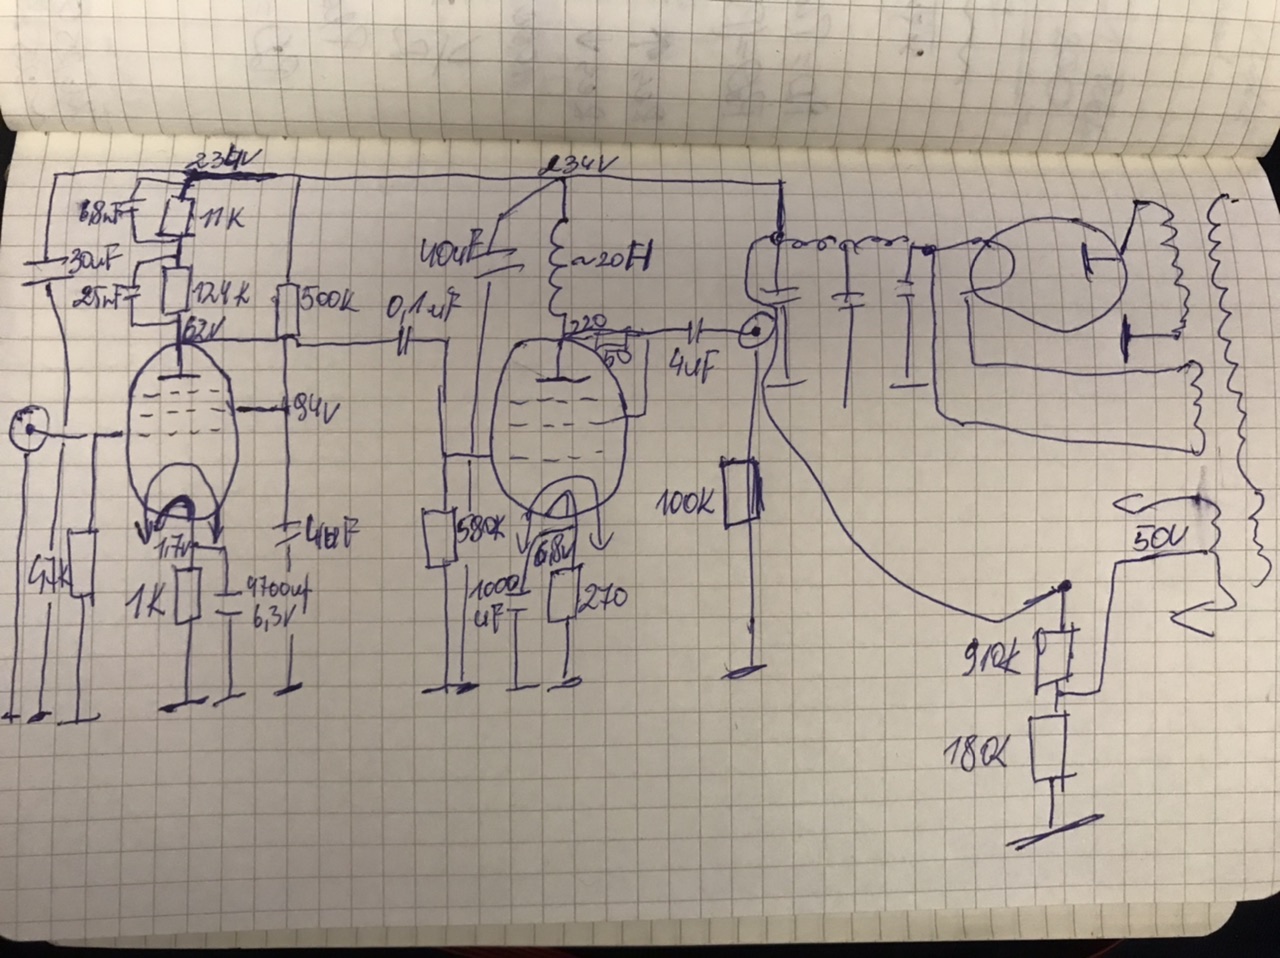 234V
234V
6,8nF
11K
30uF
25nF
124K
62V
500K
0,1uF
40uF
~20H
220
50
4uF
94V
47K
1,7V
1K
4700uf
6,3V
580K
1000
uF
6,8V
270
100K
50V
910K
180K